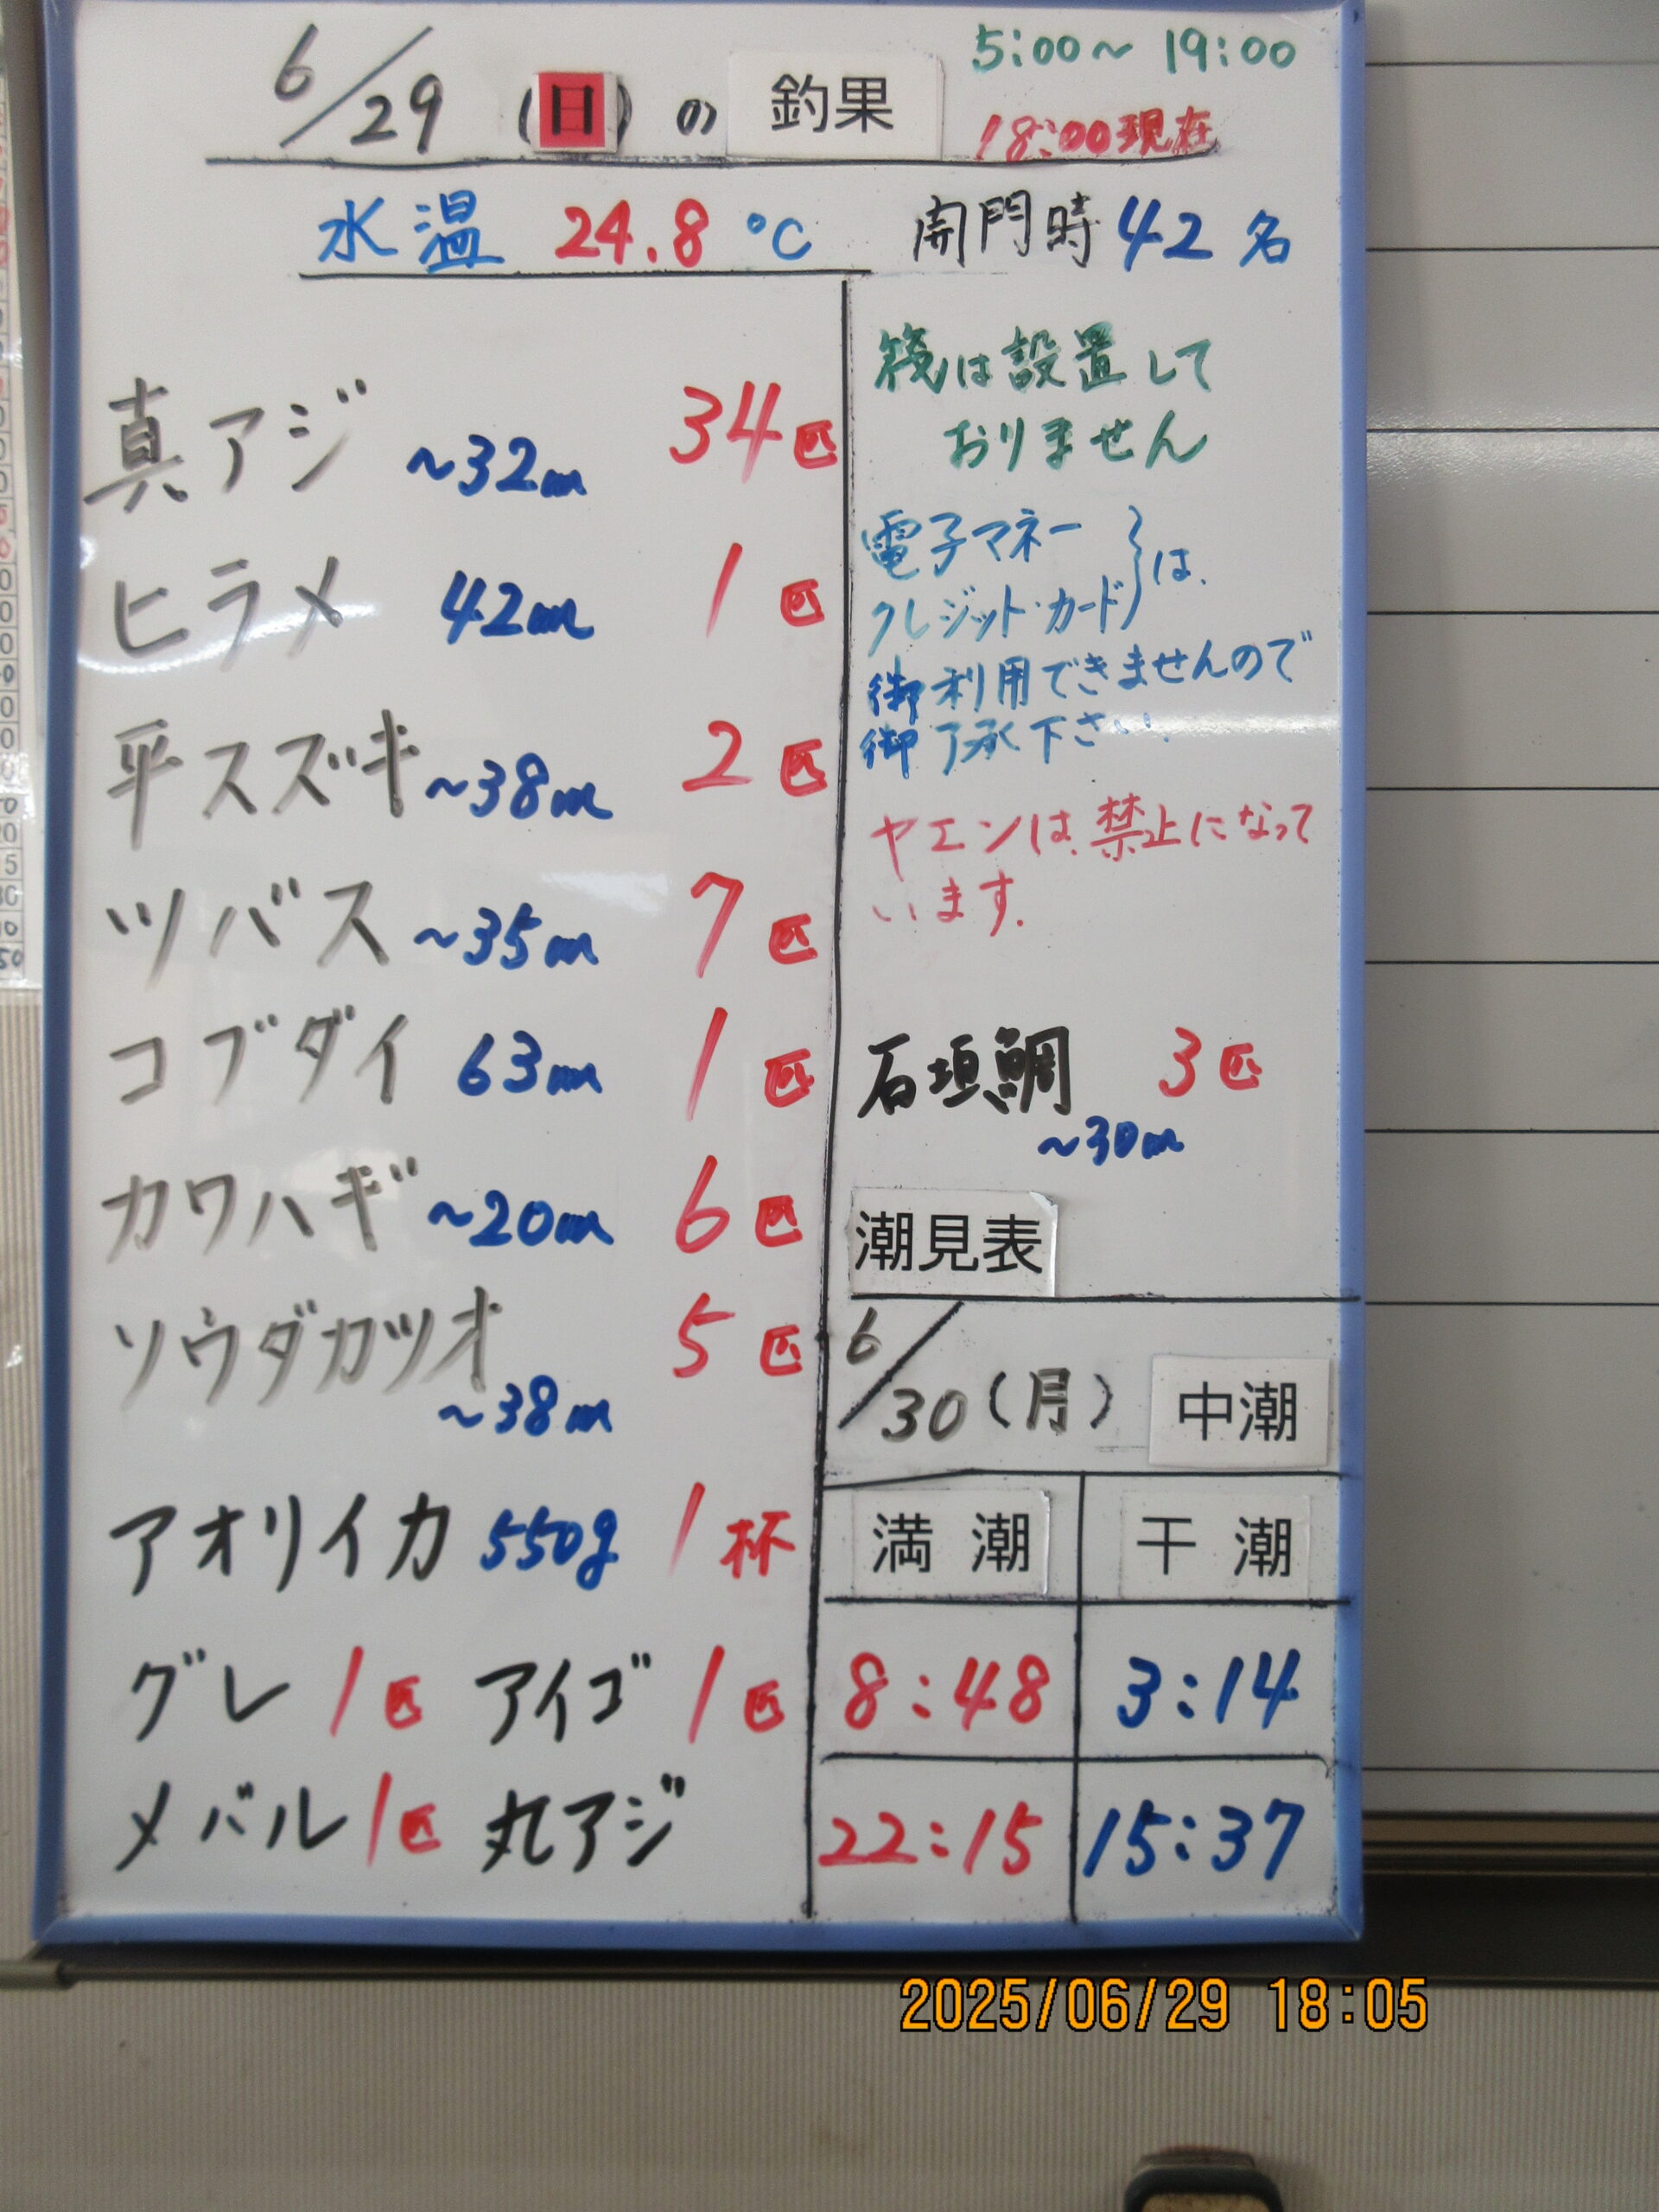 6/29 (日) の 釣果
5:00~19:00
18:00現在
水温 24.8 ℃
開門時 42名
真アジ ~32cm 34匹
ヒラメ 42cm 1匹
平スズキ ~38cm 2匹
ツバス ~35cm 7匹
コブダイ 63cm 1匹
カワハギ ~20cm 6匹
ソウダカツオ 5匹
~38cm
アオリイカ 550g 1杯
グレ 1匹 アイゴ 1匹
メバル 1匹 丸アジ
筏は設置して
おりません
電子マネー
クレジット・カード}は、
御利用できませんので
御了承下さい.
ヤエンは、禁止になって
います.
石垣鯛 3匹
~30cm
潮見表
6/30(月) 中潮
満潮 干潮
8:48 3:14
22:15 15:37
2025/06/29 18:05